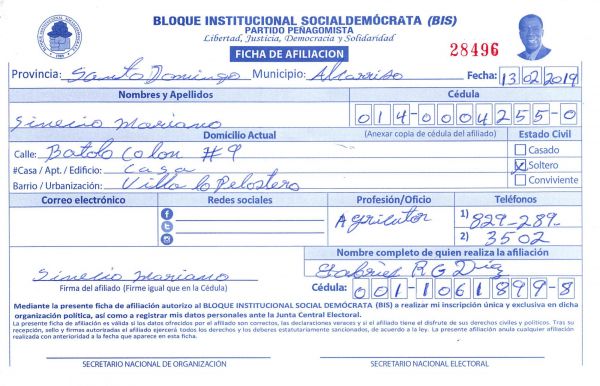 BLOQUE INSTITUCIONAL SOCIALDEMÓCRATA (BIS)
PARTIDO PEÑAGOMISTA
Libertad, Justicia, Democracia y Solidaridad
FICHA DE AFILIACION
28496
Provincia: Santo Domingo Municipio: Fecha: 13 02 2019
Nombres y Apellidos Cédula
Sinecio Mariano 014-0004255-0
Domicilio Actual (Anexar copia de cédula del afiliado) Estado Civil
Calle: Batolo Colon #9 Casado
#Casa / Apt. / Edificio: Casa Soltero
Barrio / Urbanización: Villa lo Pelotero Conviviente
Correo electrónico Redes sociales Profesión/Oficio Teléfonos
Agricutor 1) 829-289-
2) 3502
Nombre completo de quien realiza la afiliación
Sinecio Mariano R G Diaz
Firma del afiliado (Firme igual que en la Cédula) Cédula: 001-1061899-8
Mediante la presente ficha de afiliación autorizo al BLOQUE INSTITUCIONAL SOCIAL DEMÓCRATA (BIS) a realizar mi inscripción única y exclusiva en dicha
organización política, así como a registrar mis datos personales ante la Junta Central Electoral.
La presente ficha de afiliación es válida si los datos ofrecidos por el afiliado son correctos, las declaraciones veraces y si el afiliado tiene el disfrute de sus derechos civiles y políticos. Tras su
recepción, sello y firmas autorizadas el afiliado ejercerá todos los derechos y los deberes estatutariamente sancionados, de acuerdo a la ley. La presente afiliación anula cualquier afiliación
realizada con anterioridad a la fecha que aparece en esta ficha.
SECRETARIO NACIONAL DE ORGANIZACIÓN SECRETARIO NACIONAL ELECTORAL